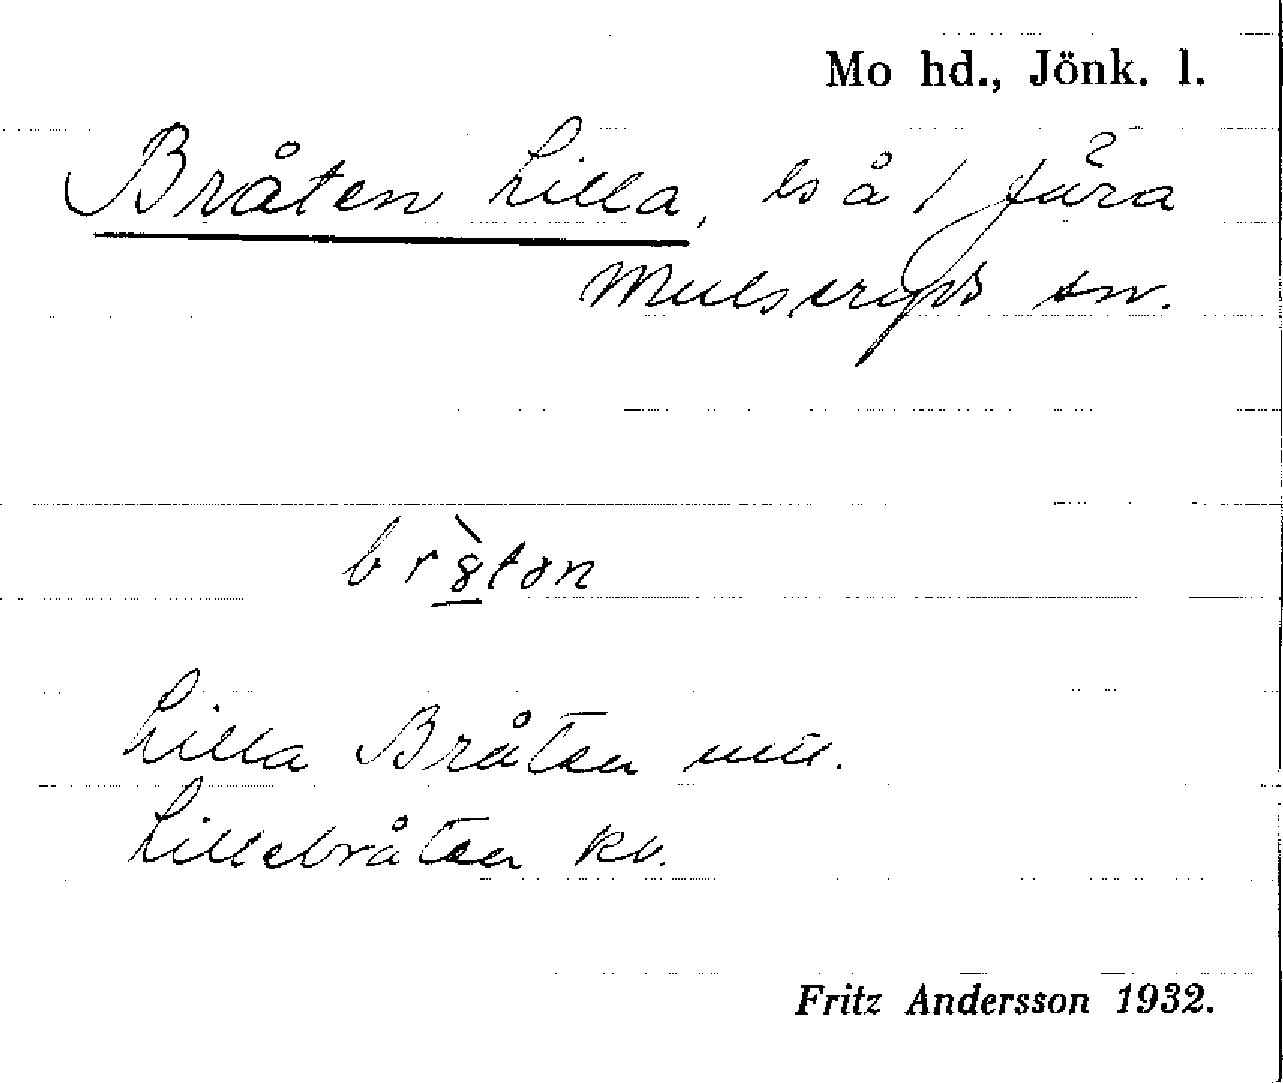 Mo hd., Jönk. l.
Bråten Lilla, ls å 1 Jära
Mulseryds sn.
br8̀ton
Lilla Bråten
Lillebråten kv.
Fritz Andersson 1932.